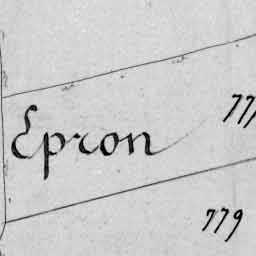 Epron
779